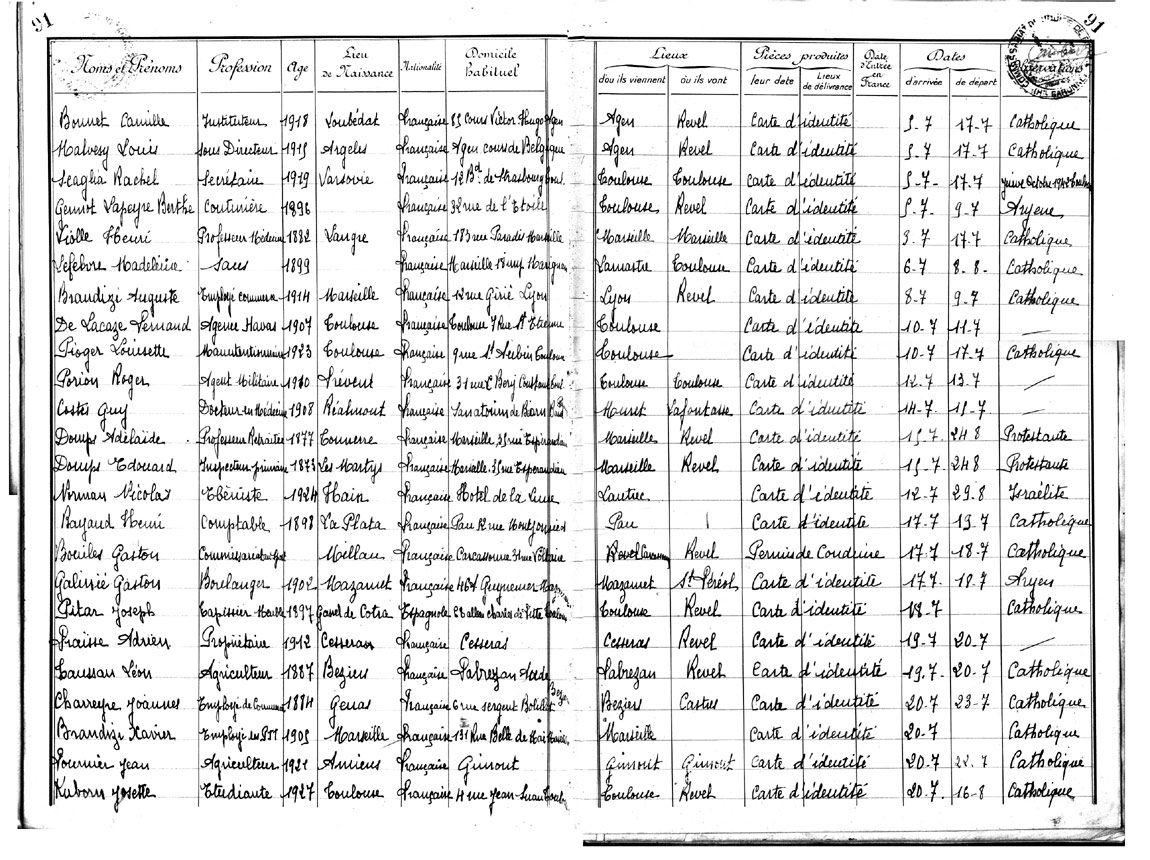 91 91
Noms et Prénoms Profession Age Lieu de Naissance Nationalité Domicile Habituel Lieux d'ou ils viennent ou ils vont Pièces produites leur date Lieux de délivrance Date d'Entrée en France Dates d'arrivée de départ Observations
Bonnet Camille Instituteur 1918 Loubédat française 85 Cours Victor Hugo Agen Agen Revel Carte d'identité 5-7 17-7 Catholique
Malvesy Louis Sous Directeur 1915 Argeles française Agen cours de Belgique Agen Revel Carte d'identité 5-7 17-7 Catholique
Scaglia Rachel Secrétaire 1919 Varsovie française 12 Bd de Strasbourg Toul. Toulouse Toulouse Carte d'identité 5-7- 17-7 juive Octobre 1942
Lapeyre Berthe Couturière 1896 française 32 rue de l'Etoile Toulouse Revel Carte d'identité 5-7- 9-7 Aryene
Violle Henri Professeur Médecine 1882 Langre française 183 rue Paradis Marseille Marseille Marseille Carte d'identité 3-7 17-7 Catholique
Lefebvre Madeleine Sans 1899 française Marseille 18 Lamastre Toulouse Carte d'identité 6-7 8-8- Catholique
Brandizi Auguste Employé commerce 1914 Marseille française 12 rue Lyon Lyon Revel Carte d'identité 8-7 9-7 Catholique
De Lacaze Fernand Agence Havas 1907 Toulouse française Toulouse 7 Rue St Etienne Toulouse Carte d'identité 10-7 11-7 —
Pioger Loussette Manutentionnaire 1923 Toulouse française 9 rue St Aubin Toulouse Toulouse Carte d'identité 10-7 17-7 Catholique
Porion Roger Agent Militaire 1910 Frévent française 31 rue Toulouse Toulouse Carte d'identité 12-7 13-7 —
Costes Guy Docteur en Médecine 1908 Réalmont française Sanatorium de Muret Lafontasse Carte d'identité 14-7- 15-7 —
Domps Adélaïde Professeur Retraitée 1877 Tonnerre française Marseille 35 rue Esperandieu Marseille Revel Carte d'identité 15-7 24 8 Protestante
Domps Edouard Inspecteur primaire 1873 Les Martys française Marseille 35 rue Esperandieu Marseille Revel Carte d'identité 15-7 24 8 Protestante
Nicolas Ebéniste 1924 française Hotel de la Lune Lautrec Carte d'identité 12-7 29-8 Israélite
Bayaud Henri Comptable 1898 La Plata française Pau 12 rue Montpensier Pau Carte d'identité 17-7 19-7 Catholique
Bouiles Gaston Millau française Carcassonne 31 rue Voltaire Revel Permis de Conduire 17-7 18-7 Catholique
Galinié Gaston Boulanger 1902 Mazamet française Guynemer Mazamet St Férréol Carte d'identité 17-7 18-7 Aryen
Pitar Joseph Tapissier 1897 Espagnole allées Charles de Fitte Toulouse Revel Carte d'identité 18-7 Catholique
Fraisse Adrien Propriétaire 1912 Cesseras française Cesseras Cesseras Revel Carte d'identité 19-7 20-7 —
Taussan Léon Agriculteur 1887 Beziers française Fabrezan Aude Fabrezan Revel Carte d'identité 19-7- 20-7 Catholique
Charreyre Joannes Employé de Commerce 1884 Genas française 6 rue sergent Beziers Castres Carte d'identité 20-7 23-7 Catholique
Brandizi Xavier Employé des PTT 1905 Marseille française 131 Rue Belle de Mai Marseille Carte d'identité 20-7 Catholique
Fournier Jean Agriculteur 1921 Amiens française Gimont Gimont Gimont Carte d'identité 20-7 22-7 Catholique
Kuborn Josette Etudiante 1927 Toulouse française 4 rue Jean Suau Toulouse Revel Carte d'identité 20-7 16-8 Catholique